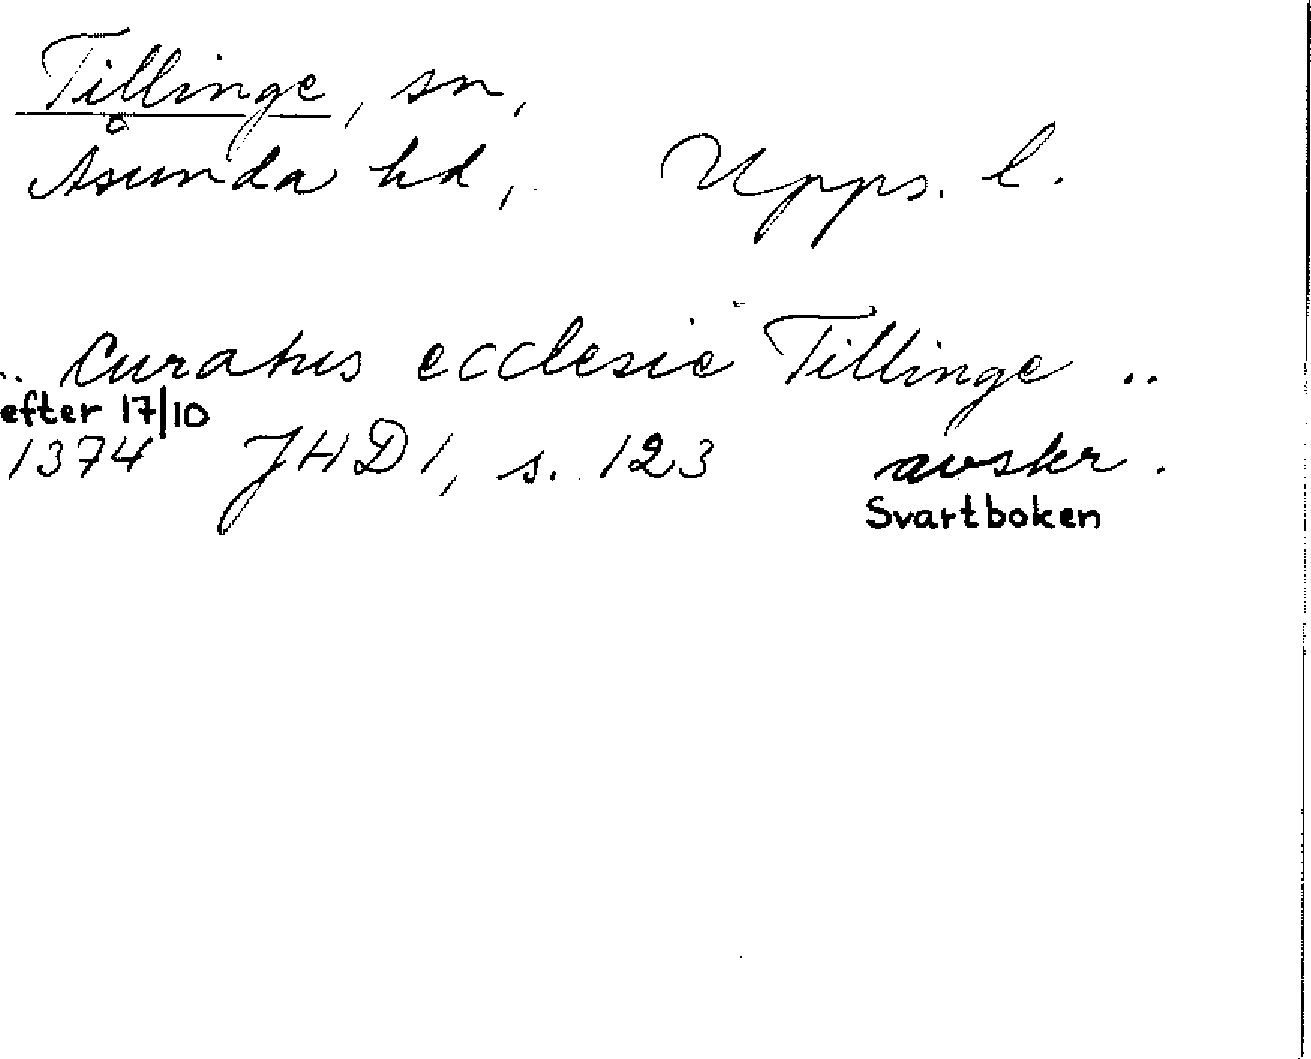 Tillinge, sn,
Åsunda hd, Upps. l.
.. curatus ecclesie Tillinge ..
efter 17/10
1374 JHD 1, s. 123 avskr.
Svartboken